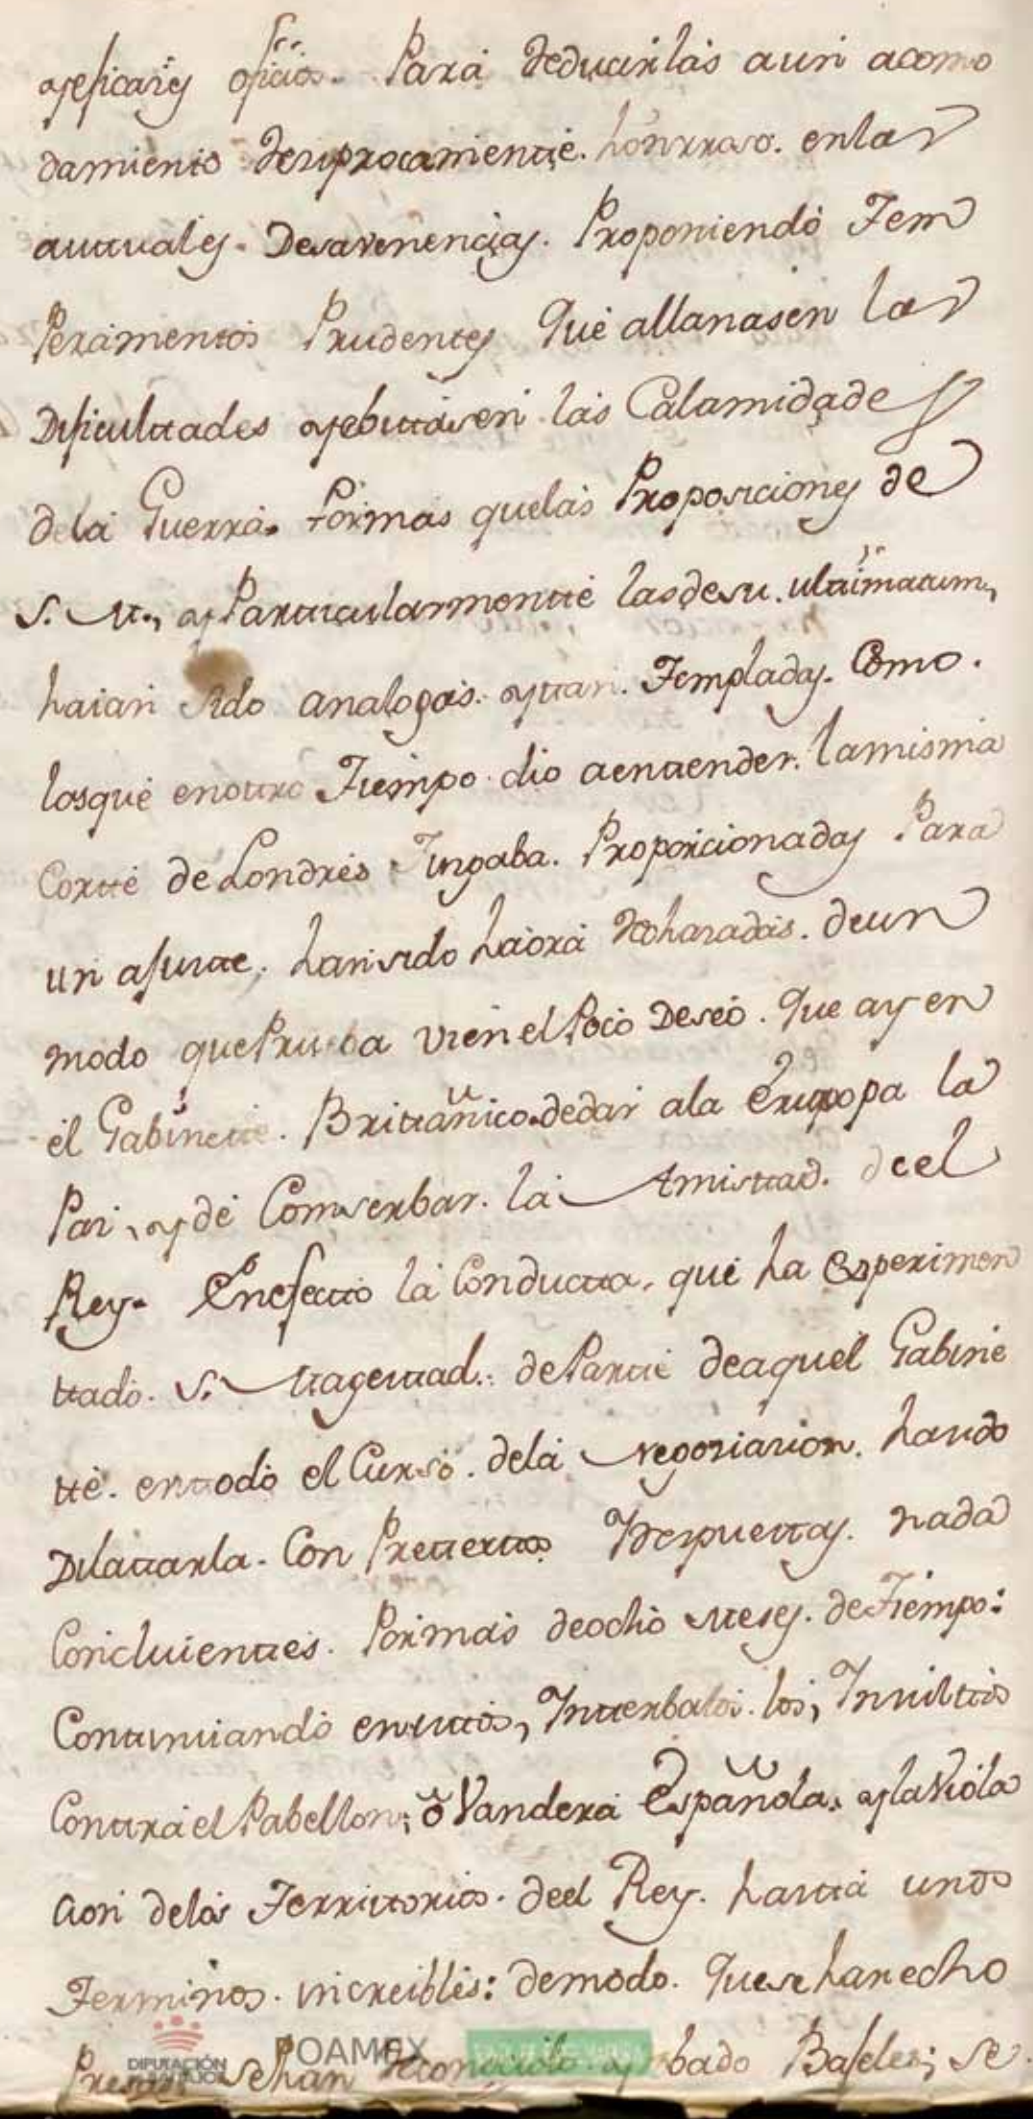 y eficaces oficios. Para Reducirlas a un acomo
damiento Reciprocamente. honrroso. en las
actuales. Desavenencias. Proponiendo Tem
Peramentos Prudentes Que allanasen las
Dificultades y ebitasen las Calamidades
de la Guerra. Pormas que las Proposiciones de
S. M., y Particularmente las de su. ultimatum,
haian sido analogas. y tan. Templadas. Como.
las que en otro Tiempo dio a entender. la misma
Corte de Londres Jusgaba. Proporcionadas Para
un ajuste, han sido haora Rechazadas. de un
modo que Prueba vien el Poco Deseo. Que ay en
el Gabinete. Británico. de dar a la Europa la
Paz, y de Comserbar. la Amistad. de el
Rey. En efecto la Conducta, que ha esperimen
tado. S. Magestad. de Parte de aquel Gabine
te. en todo el Curso. de la negoziazion. ha sido
Dilatarla. Con Pretextos Y Respuestas. nada
Concluientes. Por mas de ocho meses. de Tiempo:
Continuando en estos, Interbalos. los, Insultos
Contra el Pabellon; o Vandera Española, y la Viola
cion de los Territorios. de el Rey. hasta unos
Terminos. increibles: de modo. Que se han echo
Presas se han Reconocido. y bado Bajeles; se
DIPUTACIÓN